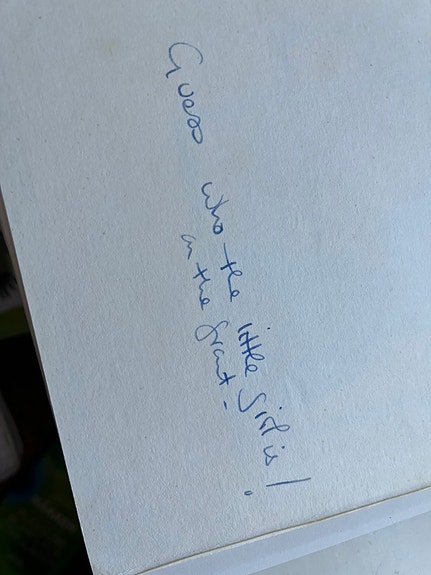 Guess who the little girl is!
on the front -